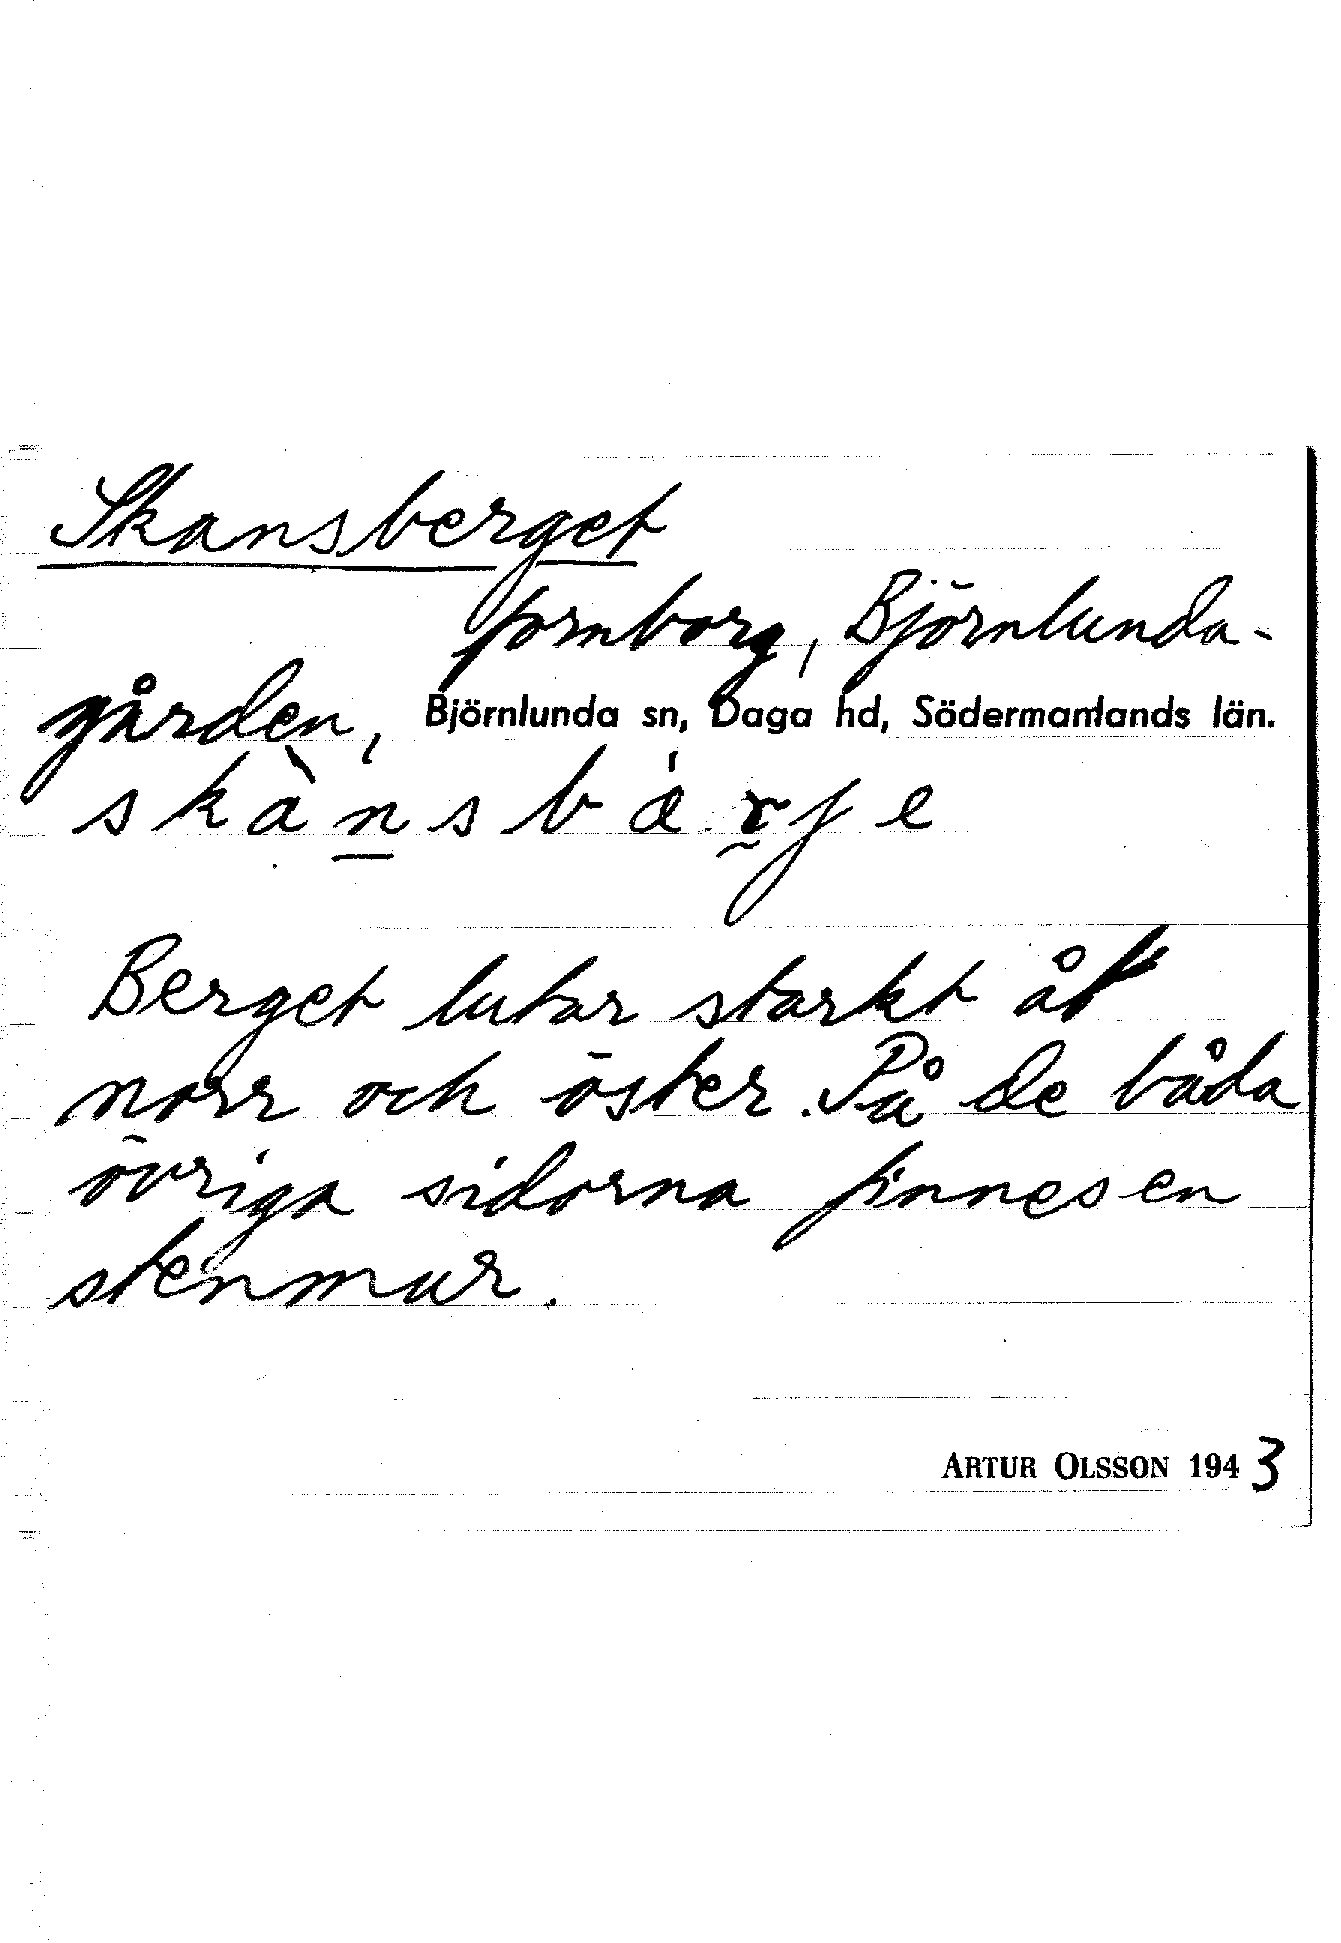 Skansberget
fornborg, Björnlunda-
gården, Björnlunda sn, Daga hd, Södermanlands län.
skànsbárje
Berget lutar starkt åt
norr och öster. På de båda
övriga sidorna finnes en
stenmur.
ARTUR OLSSON 1943